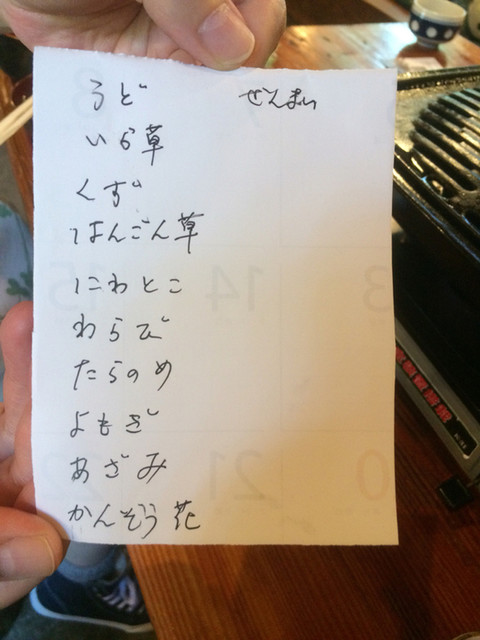 うど
ぜんまい
いら草
くず
はんごん草
にわとこ
わらび
たらのめ
よもぎ
あざみ
かんぞう花
14
21